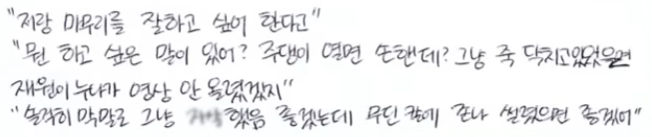 "저랑 마무리를 잘하고 싶어 한다고"
"뭔 하고 싶은 말이 있어? 주댕이 열면 손핸데? 그냥 죽 닥치고있었으면
재원이 누나가 영상 안 올렸겠지"
"솔직히 막말로 그냥 했음 좋겠는데 무딘 칼에 존나 썰렸으면 좋겠어"